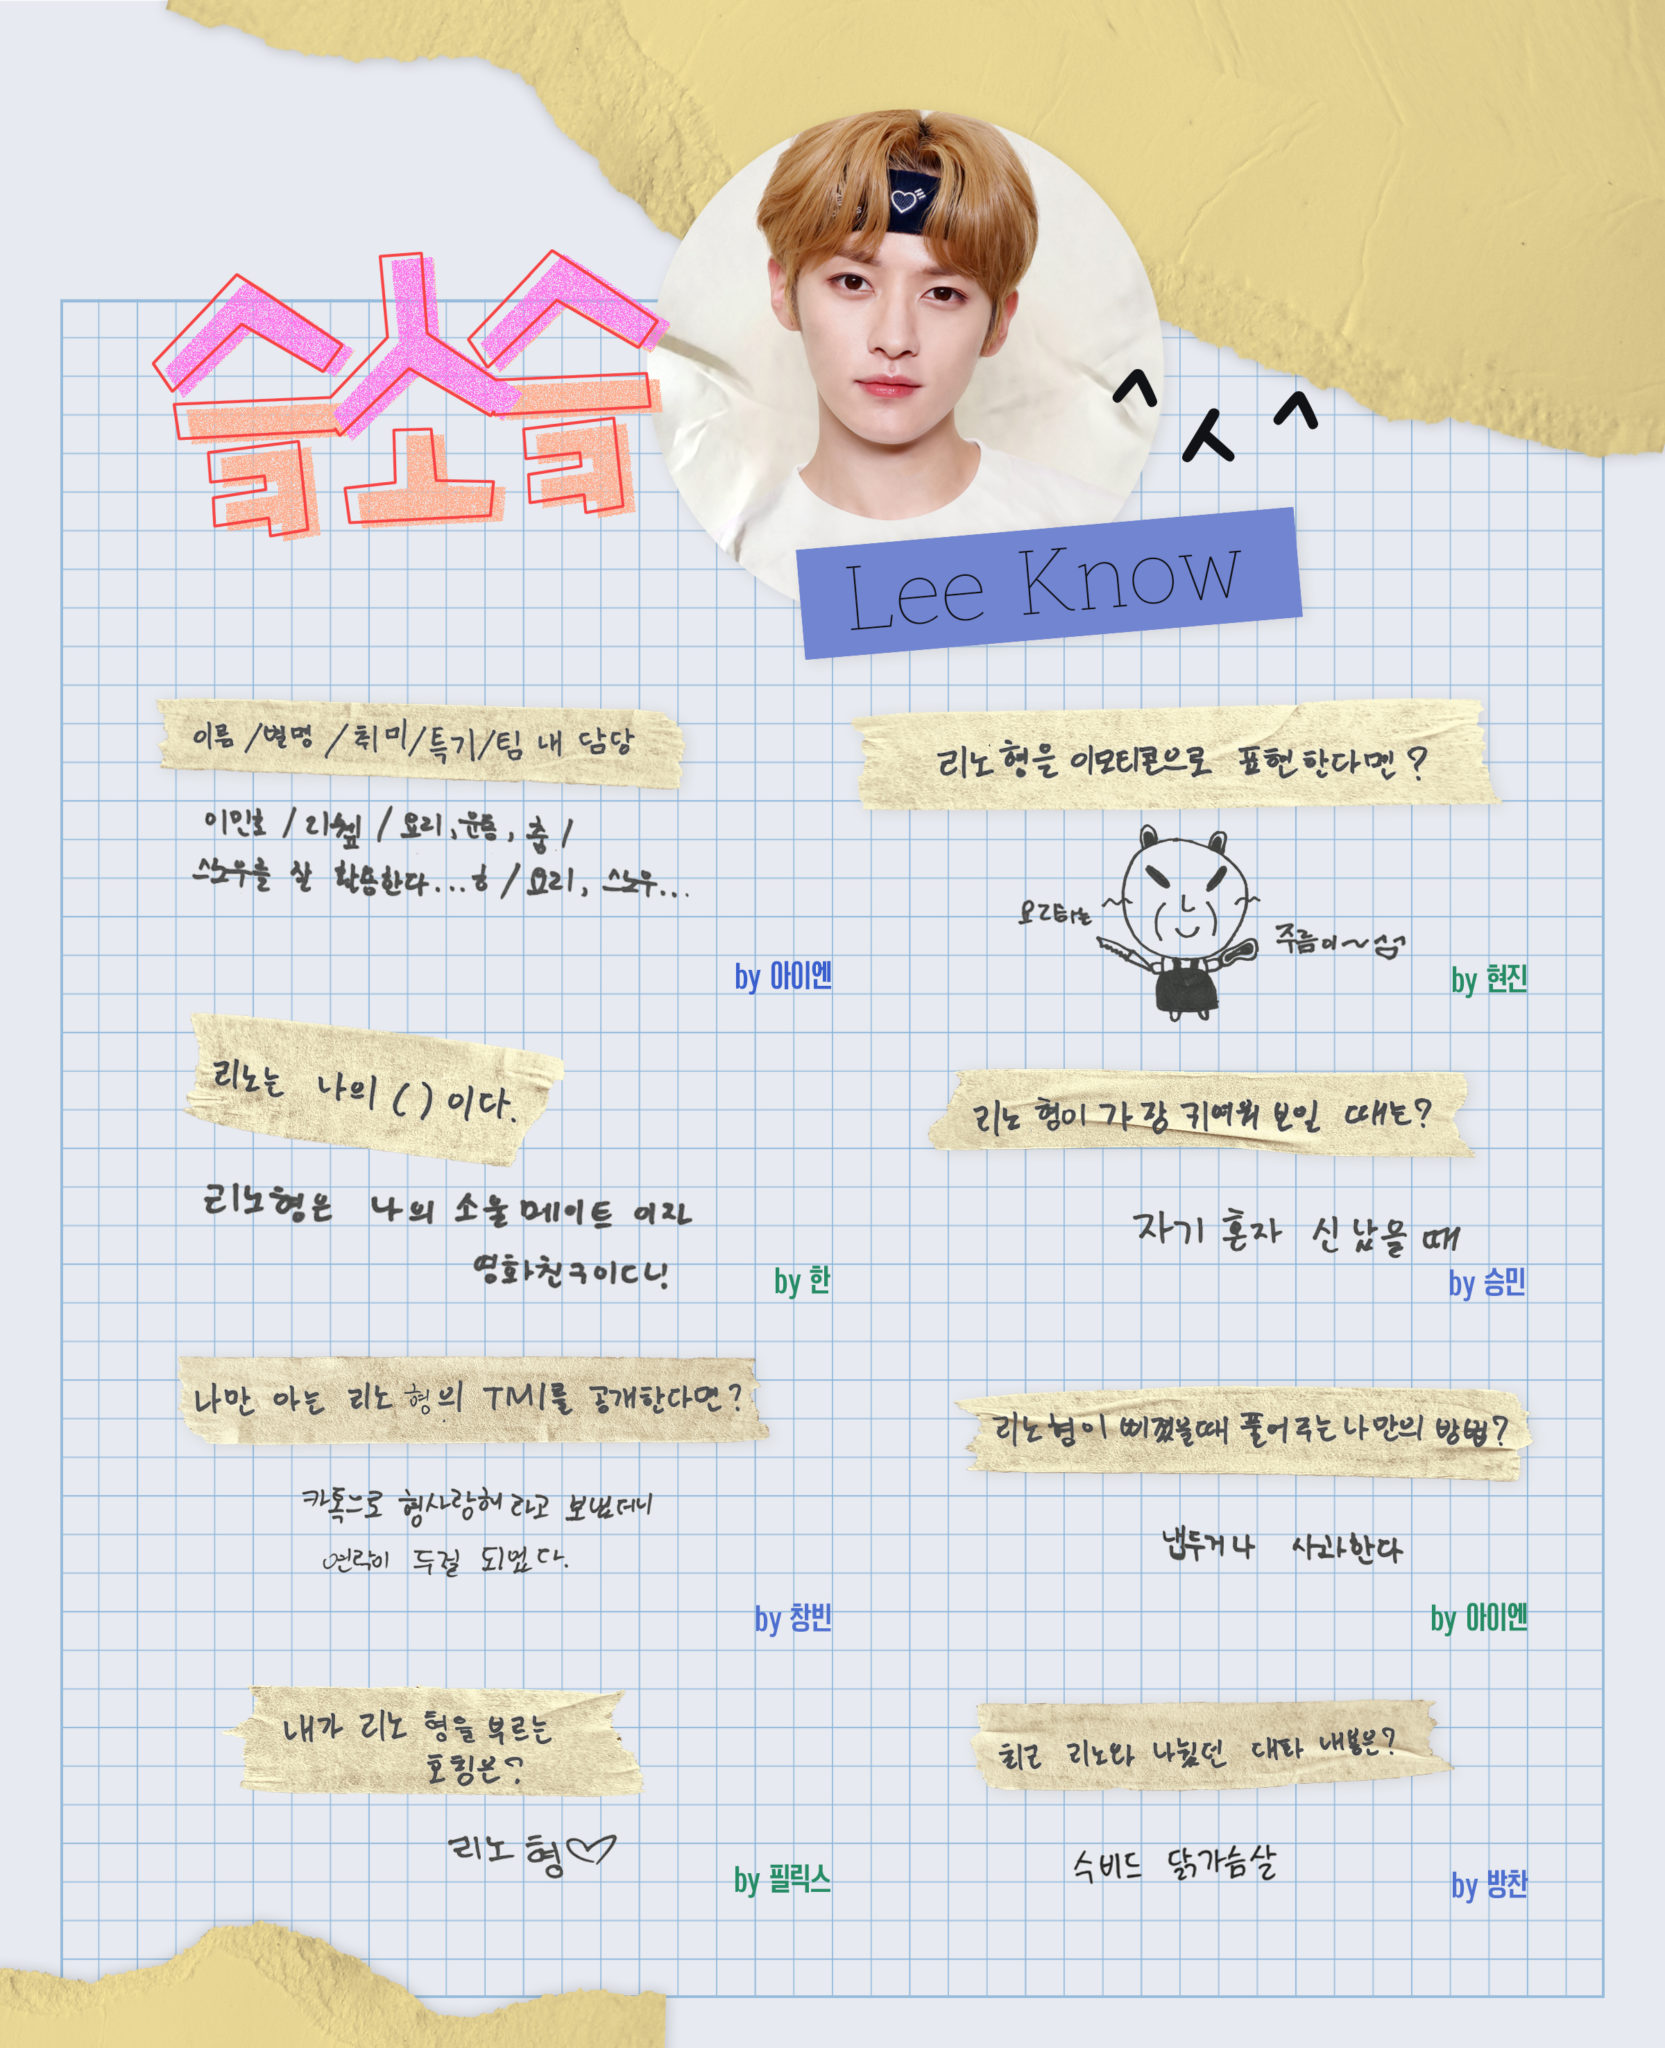 슴소슴
^ㅅ^
Lee Know
이름/별명/취미/특기/팀 내 담당
이민호/리쉪/요리, 운동, 춤/
스노우를 잘 활용한다...ㅎ/요리, 스노우...
by 아이엔
리노 형을 이모티콘으로 표현한다면?
요리하는
주름이~
by 현진
리노는 나의 ( )이다.
리노형은 나의 소울메이트 이자
영화친구이다!
by 한
리노 형이 가장 귀여워 보일 때는?
자기 혼자 신났을 때
by 승민
나만 아는 리노 형의 TMI를 공개한다면?
카톡으로 형사랑해라고 보냈더니
연락이 두절 되었다.
by 창빈
리노 형이 삐졌을때 풀어주는 나만의 방법?
냅두거나 사과한다
by 아이엔
내가 리노 형을 부르는
호칭은?
리노 형♡
by 필릭스
최근 리노와 나눴던 대화 내용은?
수비드 닭가슴살
by 방찬